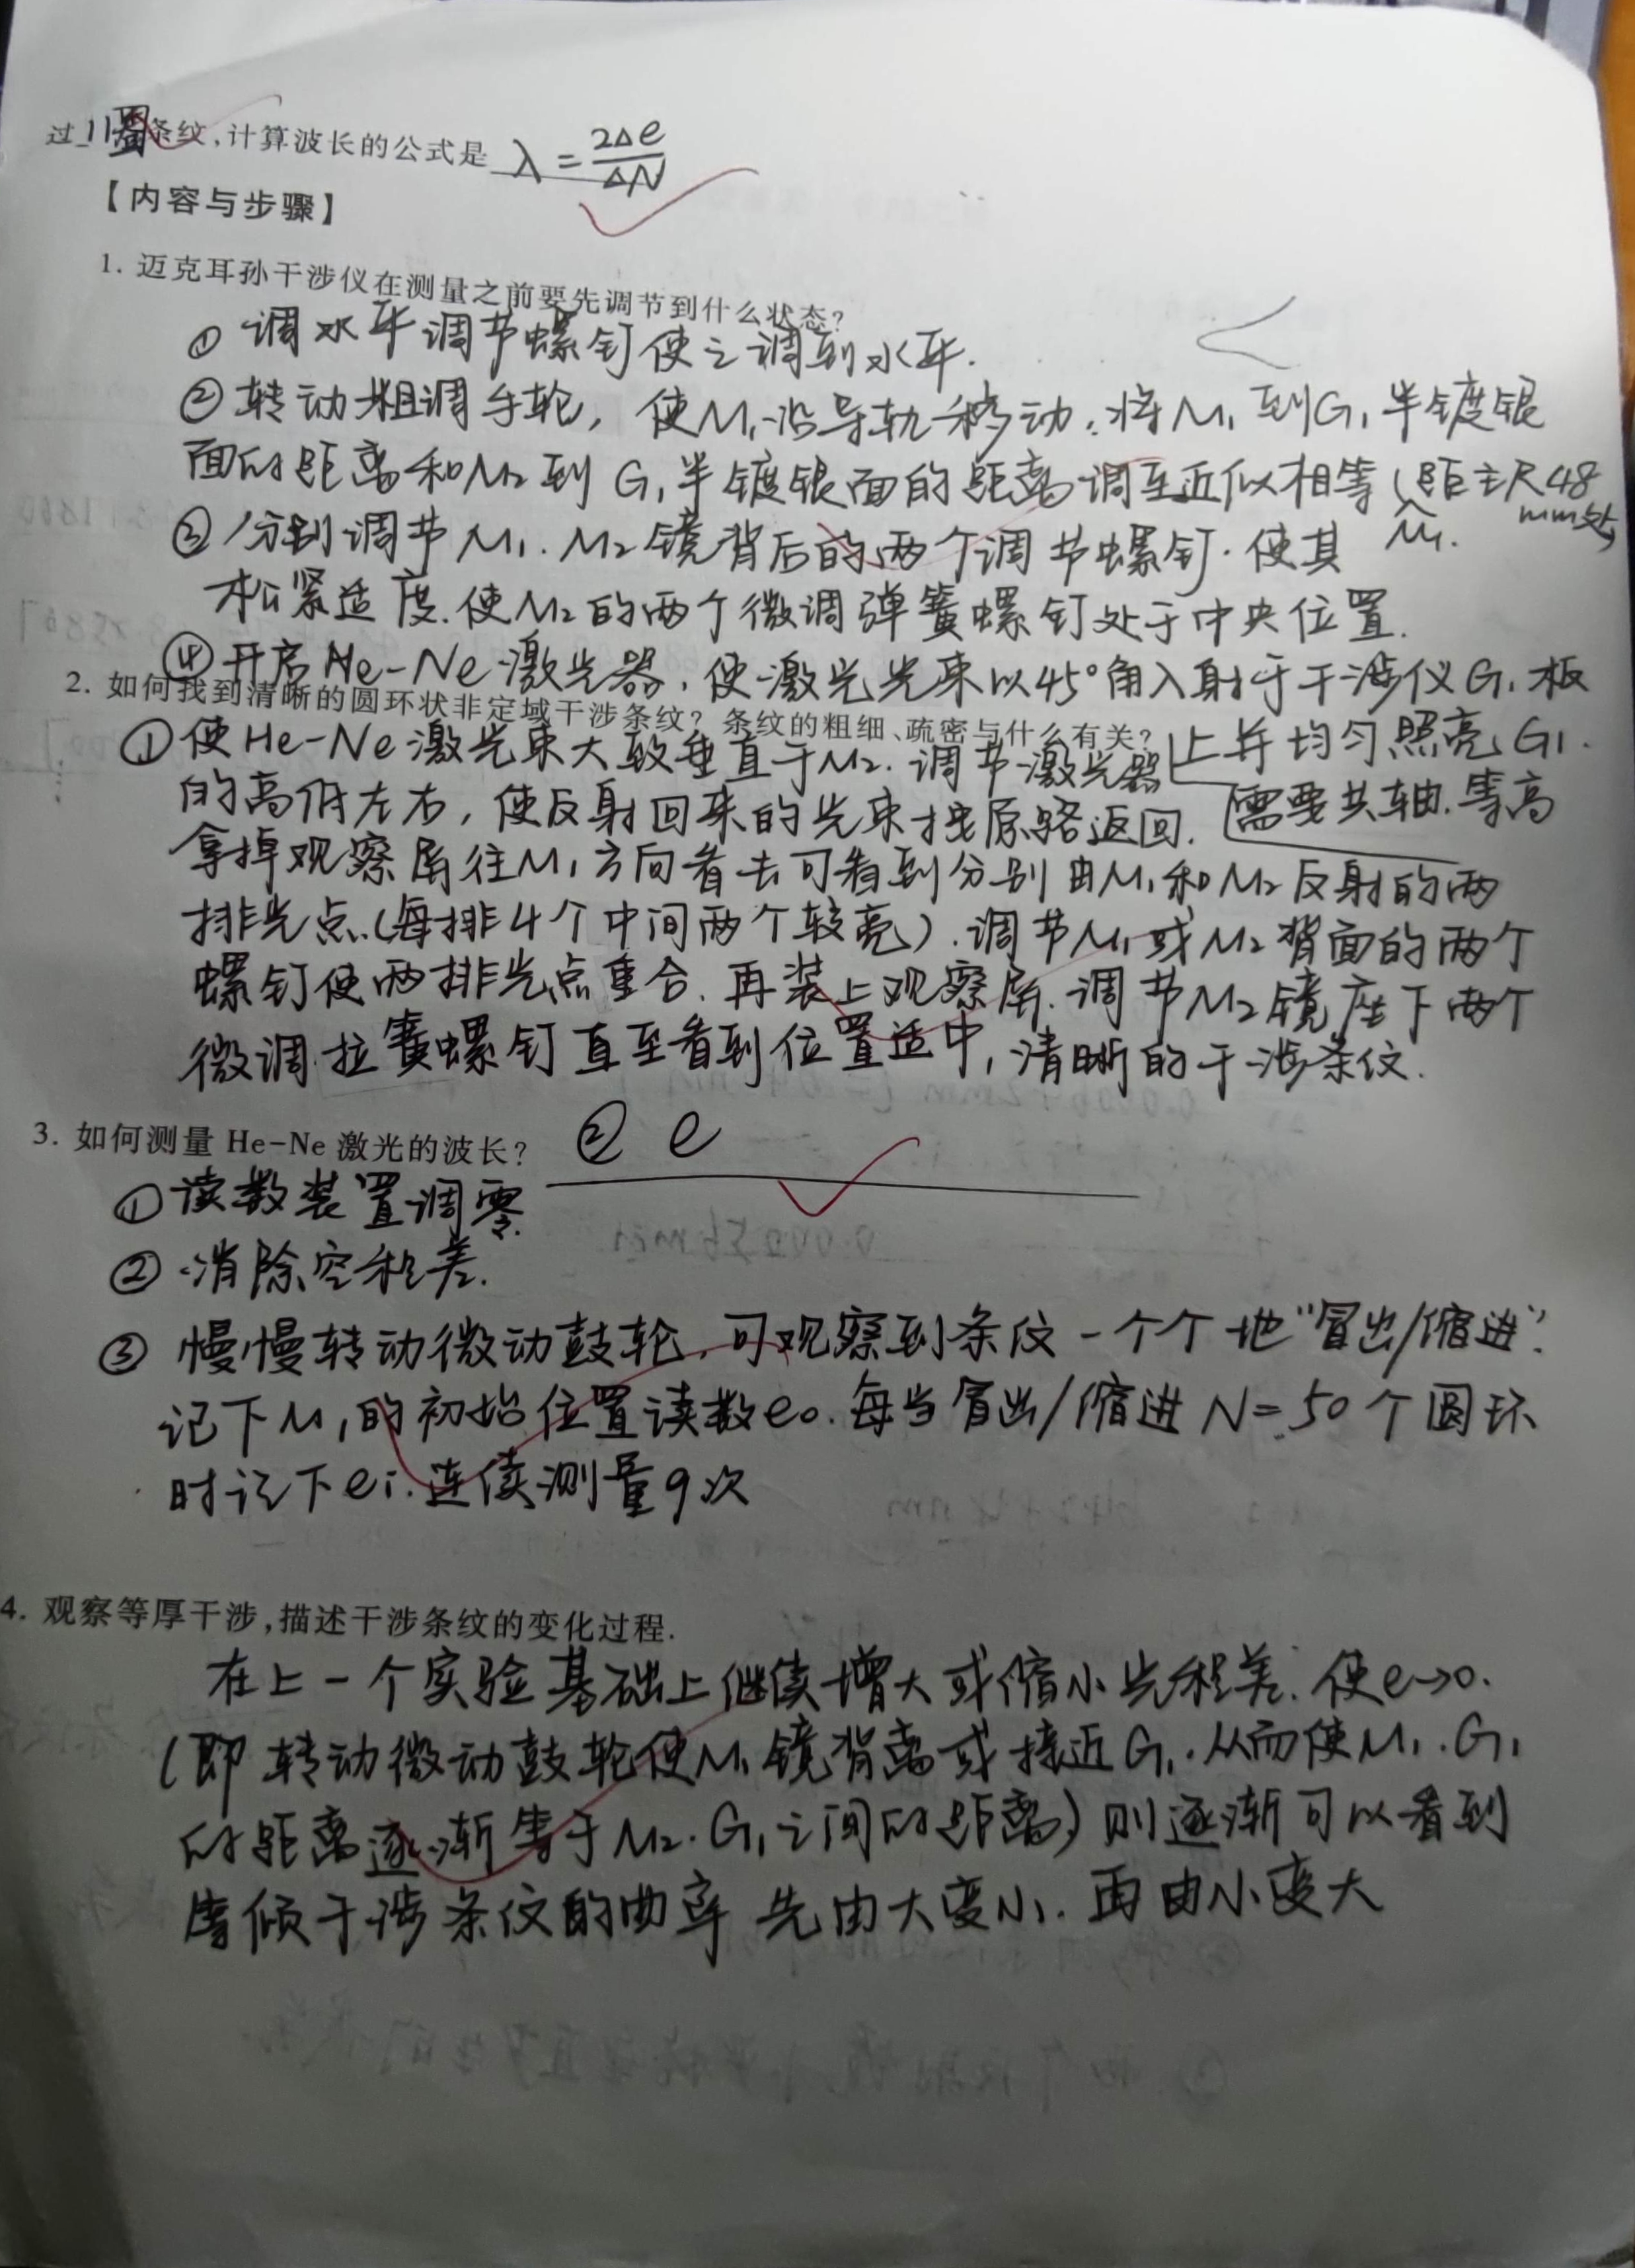 过11圈条纹,计算波长的公式是 λ=2Δe/ΔN
【内容与步骤】
1. 迈克耳孙干涉仪在测量之前要先调节到什么状态?
① 调水平调节螺钉使之调到水平.
② 转动粗调手轮, 使M₁沿导轨移动,将M₁到G₁半镀银
面的距离和M₂到G₁半镀银面的距离调至近似相等(M₁距主尺48mm处)
③ 分别调节M₁.M₂镜背后的两个调节螺钉.使其
松紧适度.使M₂的两个微调弹簧螺钉处于中央位置.
④开启He-Ne激光器,使激光光束以45°角入射于干涉仪G₁板
上并均匀照亮G₁.
需要共轴.等高
2. 如何找到清晰的圆环状非定域干涉条纹?条纹的粗细、疏密与什么有关?
①使He-Ne激光束大致垂直于M₂.调节激光器
的高低左右,使反射回来的光束按原路返回.
拿掉观察屏往M₁方向看去可看到分别由M₁和M₂反射的两
排光点(每排4个中间两个较亮).调节M₁或M₂背面的两个
螺钉使两排光点重合.再装上观察屏.调节M₂镜座下两个
微调拉簧螺钉直至看到位置适中,清晰的干涉条纹.
② e
3. 如何测量 He-Ne 激光的波长?
①读数装置调零.
②消除空程差.
③ 慢慢转动微动鼓轮,可观察到条纹一个个地“冒出/缩进”.
记下M₁的初始位置读数e₀.每当冒出/缩进N=50个圆环
时记下ei.连续测量9次
4. 观察等厚干涉,描述干涉条纹的变化过程.
在上一个实验基础上继续增大或缩小光程差.使e→0.
(即转动微动鼓轮使M₁镜背离或接近G₁.从而使M₁.G₁
的距离逐渐等于M₂.G₁之间的距离)则逐渐可以看到
等倾干涉条纹的曲率先由大变小.再由小变大